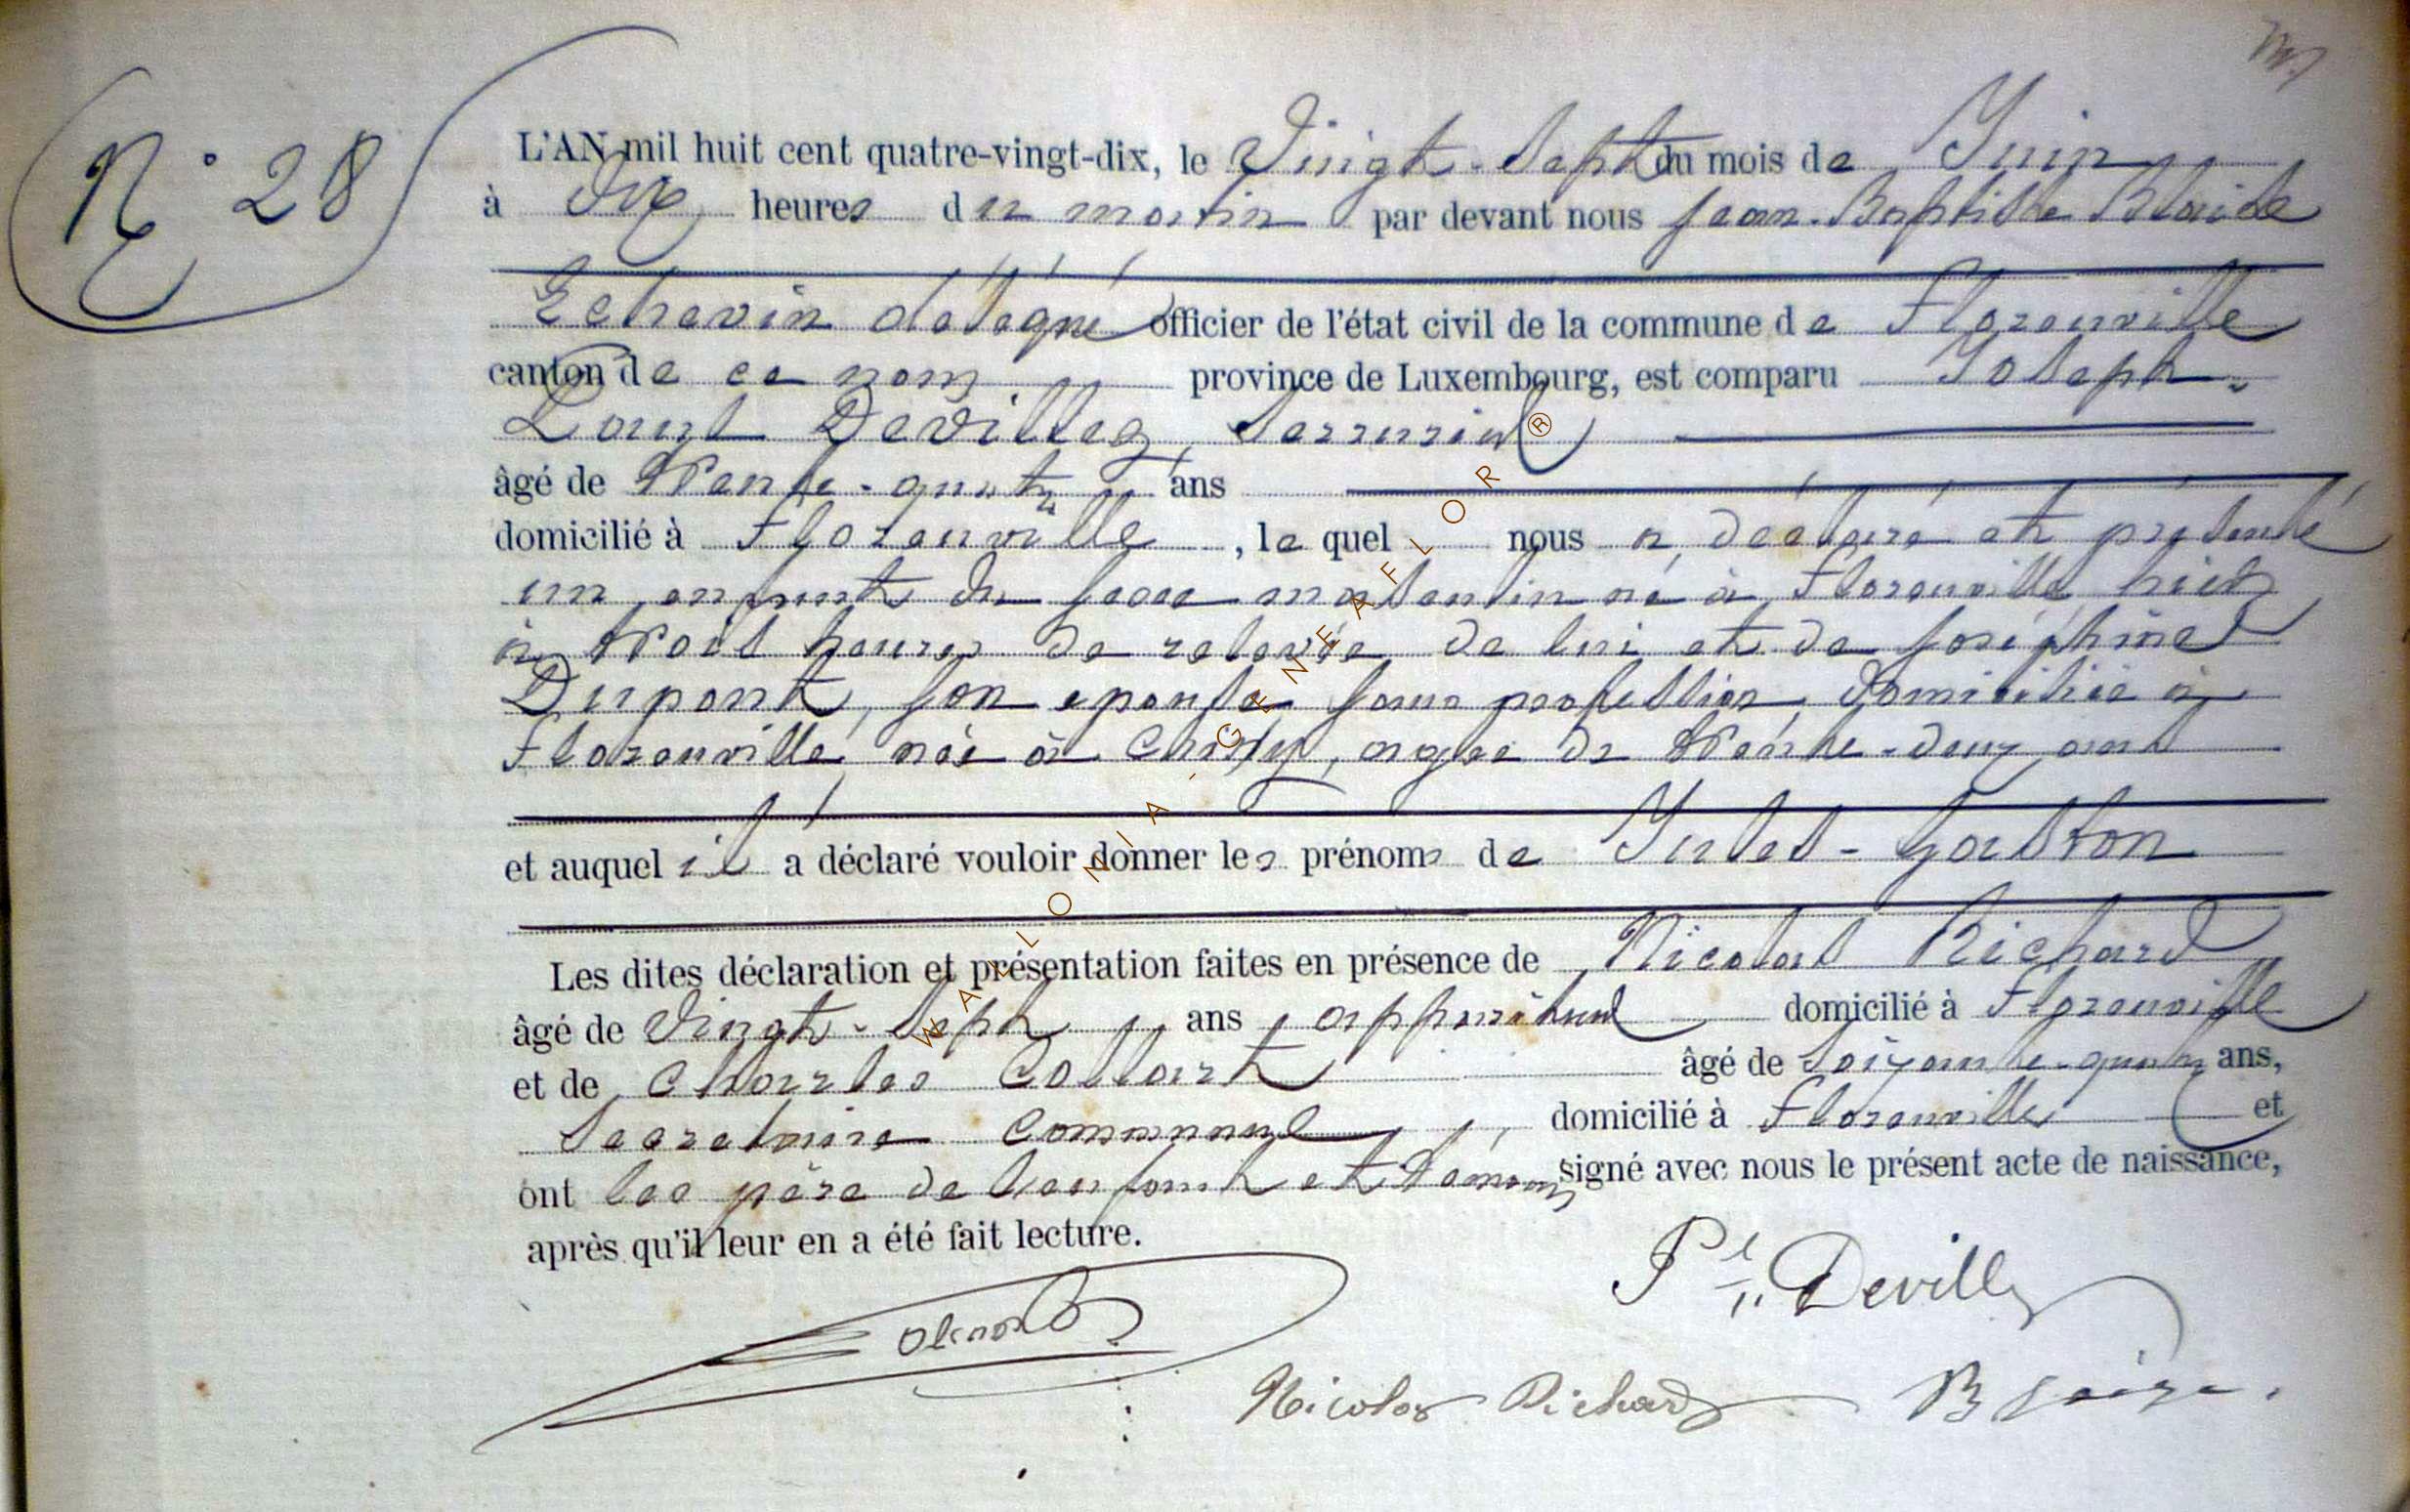 N° 28
L'AN mil huit cent quatre-vingt-dix, le Vingt-Sept du mois de Juin
à dix heures du matin par devant nous Jean-Baptiste Blaise
Echevin délégué officier de l'état civil de la commune de Florenville
canton de ce nom province de Luxembourg, est comparu Joseph-
Louis Devillez, Serrurier
âgé de Trente-quatre ans
domicilié à Florenville, lequel nous a déclaré et présenté
un enfant du sexe masculin né à Florenville hier
à trois heures de relevée de lui et de Joséphine
Dupont, son epouse, sans profession, domiciliée à
Florenville née à agée de trente-deux ans
et auquel il a déclaré vouloir donner les prénoms de Jules-Gaston
Les dites déclaration et présentation faites en présence de Nicolas Richard
âgé de Vingt-Sept ans, domicilié à Florenville
et de Charles Collart âgé de Soixante-quatre ans,
Secretaire Communal, domicilié à Florenville et
ont les père de l'enfant et témoins signé avec nous le présent acte de naissance,
après qu'il leur en a été fait lecture.
Devillez
Nicolas Richard Blaise.
WALLONIA - GENEAFLOR®